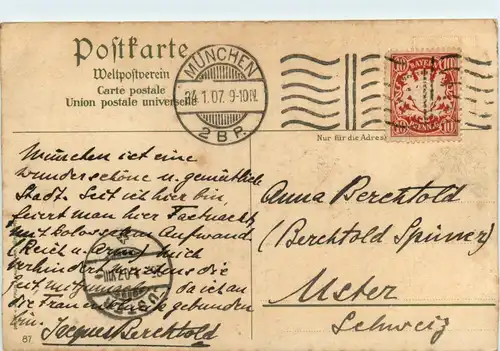 Postkarte
Weltpostverein
Carte postale
Union postale universelle
MÜNCHEN
24.1.07. 9-10 N.
2 B.P.
BAYERN
10 10
PFENNIG
Nur für die Adresse
München ist eine
wunderschöne u. gemütliche
Stadt. Seit ich hier bin,
feiert man hier Fastnacht
mit kolossalem Aufwand
(Reich u. Arm) mich
die
Zeit mitzumachen da ich an
die gebunden
bin. Jacques Berchtold
Anna Berchtold
(Berchtold Spinner)
Uster
Schweiz
USTER
67